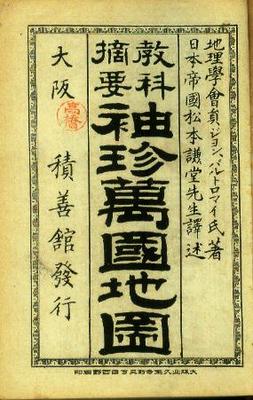 地理學會員ジョン、バルトロマイ氏著
日本帝國松本謙堂先生譯述
教科摘要
袖珍萬國地圖
大阪 積善館發行
高橋